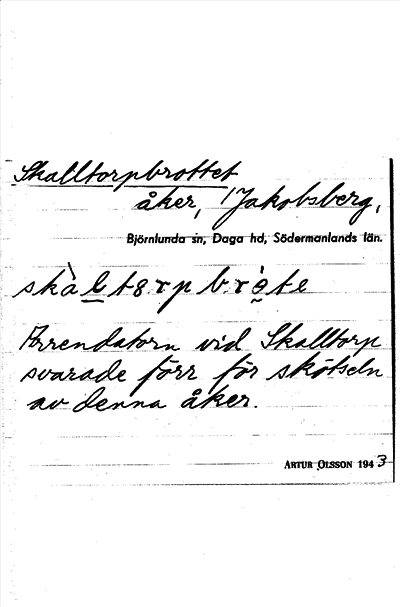 Skalltorpbrottet
åker, 1 Jakobsberg,
Björnlunda sn, Daga hd, Södermanlands län.
skàltorpbrote
Arrendatorn vid Skalltorp
svarade förr för skötseln
av denna åker.
ARTUR OLSSON 1943